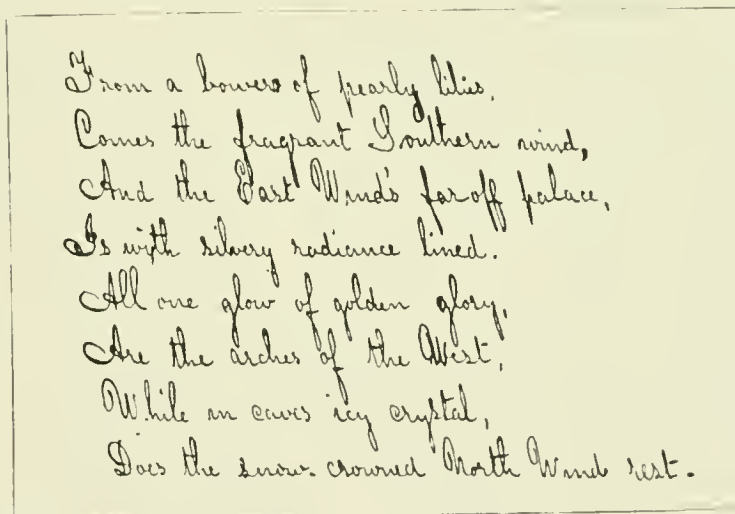 From a bowers of pearly lilies,
Comes the fragrant Southern wind,
And the East Wind's far off palace,
Is with silvery radiance lined.
All one glow of golden glory,
Are the arches of the West,
While in caves icy crystal,
Does the snow-crowned North Wind rest.